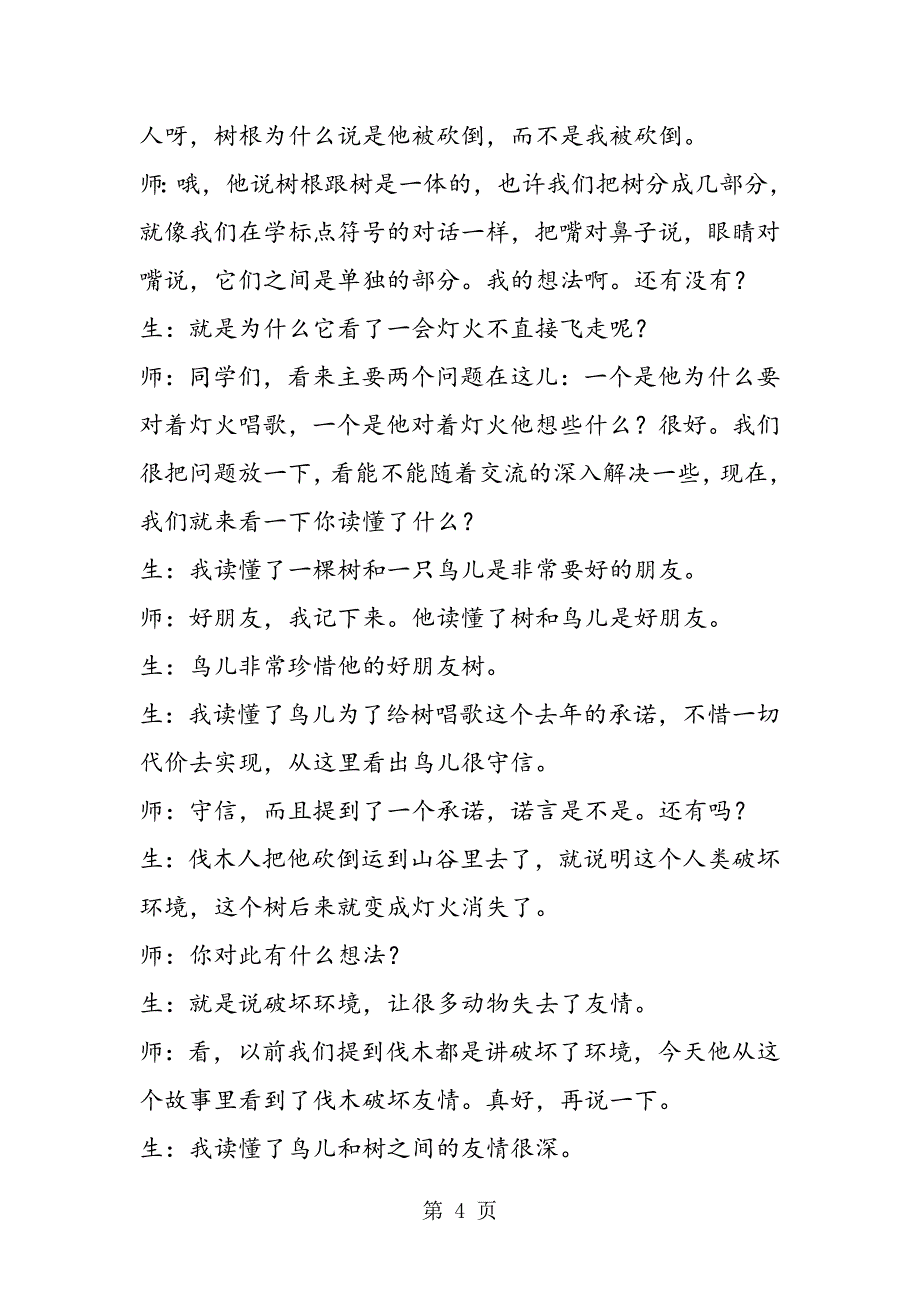 人呀，树根为什么说是他被砍倒，而不是我被砍倒。
师：哦，他说树根跟树是一体的，也许我们把树分成几部分，
就像我们在学标点符号的对话一样，把嘴对鼻子说，眼睛对
嘴说，它们之间是单独的部分。我的想法啊。还有没有？
生：就是为什么它看了一会灯火不直接飞走呢？
师：同学们，看来主要两个问题在这儿：一个是他为什么要
对着灯火唱歌，一个是他对着灯火他想些什么？很好。我们
很把问题放一下，看能不能随着交流的深入解决一些，现在，
我们就来看一下你读懂了什么？
生：我读懂了一棵树和一只鸟儿是非常要好的朋友。
师：好朋友，我记下来。他读懂了树和鸟儿是好朋友。
生：鸟儿非常珍惜他的好朋友树。
生：我读懂了鸟儿为了给树唱歌这个去年的承诺，不惜一切
代价去实现，从这里看出鸟儿很守信。
师：守信，而且提到了一个承诺，诺言是不是。还有吗？
生：伐木人把他砍倒运到山谷里去了，就说明这个人类破坏
环境，这个树后来就变成灯火消失了。
师：你对此有什么想法？
生：就是说破坏环境，让很多动物失去了友情。
师：看，以前我们提到伐木都是讲破坏了环境，今天他从这
个故事里看到了伐木破坏友情。真好，再说一下。
生：我读懂了鸟儿和树之间的友情很深。
第 4 页